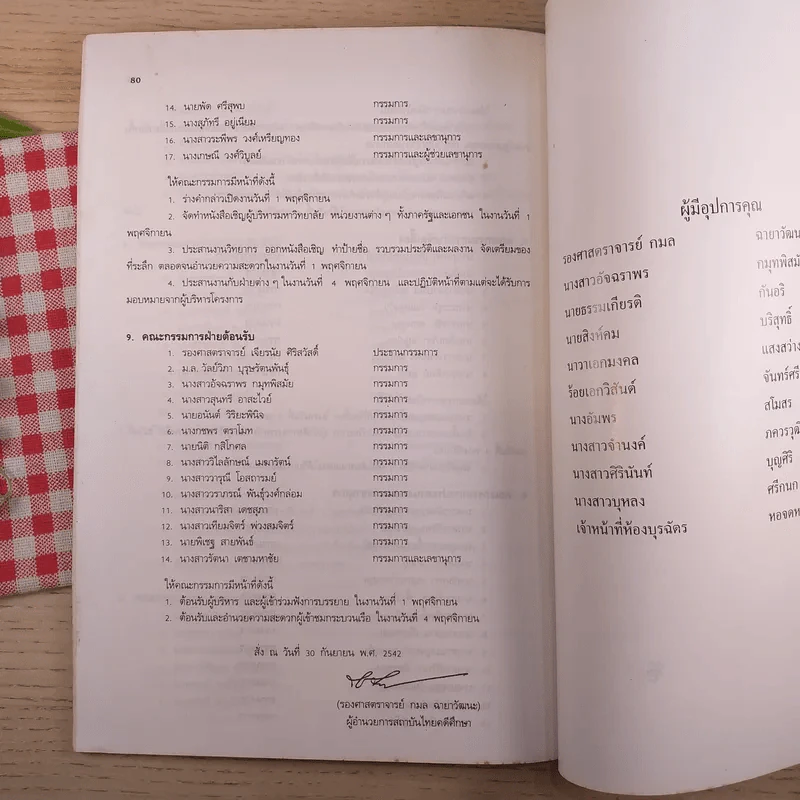 80
14. นายพัด ศรีสุพบ กรรมการ
15. นางสุภัทรี อยู่เนียม กรรมการ
16. นางสาวระพีพร วงศ์เหรียญทอง กรรมการและเลขานุการ
17. นางเกษณี วงศ์วิบูลย์ กรรมการและผู้ช่วยเลขานุการ
ให้คณะกรรมการมีหน้าที่ดังนี้
1. ร่างคำกล่าวเปิดงานวันที่ 1 พฤศจิกายน
2. จัดทำหนังสือเชิญผู้บริหารมหาวิทยาลัย หน่วยงานต่างๆ ทั้งภาครัฐและเอกชน ในงานวันที่ 1
พฤศจิกายน
3. ประสานงานวิทยากร ออกหนังสือเชิญ ทำป้ายชื่อ รวบรวมประวัติและผลงาน จัดเตรียมของ
ที่ระลึก ตลอดจนอำนวยความสะดวกในงานวันที่ 1 พฤศจิกายน
4. ประสานงานกับฝ่ายต่างๆ ในงานวันที่ 4 พฤศจิกายน และปฏิบัติหน้าที่ตามแต่จะได้รับการ
มอบหมายจากผู้บริหารโครงการ
9. คณะกรรมการฝ่ายต้อนรับ
1. รองศาสตราจารย์ เจียรนัย ศิริสวัสดิ์ ประธานกรรมการ
2. ม.ล. วัลย์วิภา บุรุษรัตนพันธุ์ กรรมการ
3. นางสาวอัจฉราพร กมุทพิสมัย กรรมการ
4. นางสาวสุนทรี อาสะไวย์ กรรมการ
5. นายอนันต์ วิริยะพินิจ กรรมการ
6. นางกชพร ตราโมท กรรมการ
7. นายนิติ กสิโกศล กรรมการ
8. นางสาววิไลลักษณ์ เมฆารัตน์ กรรมการ
9. นางสาววารุณี โอสถารมย์ กรรมการ
10. นางสาววราภรณ์ พันธุ์วงศ์กล่อม กรรมการ
11. นางสาวนาริสา เดชสุภา กรรมการ
12. นางสาวเทียมจิตร์ พ่วงสมจิตร์ กรรมการ
13. นายพิเชฐ สายพันธ์ กรรมการ
14. นางสาวรัตนา เตชามหาชัย กรรมการและเลขานุการ
ให้คณะกรรมการมีหน้าที่ดังนี้
1. ต้อนรับผู้บริหาร และผู้เข้าร่วมฟังการบรรยาย ในงานวันที่ 1 พฤศจิกายน
2. ต้อนรับและอำนวยความสะดวกผู้เข้าชมกระบวนเรือ ในงานวันที่ 4 พฤศจิกายน
สั่ง ณ วันที่ 30 กันยายน พ.ศ. 2542
(รองศาสตราจารย์ กมล ฉายาวัฒนะ)
ผู้อำนวยการสถาบันไทยคดีศึกษา
ผู้มีอุปการคุณ
รองศาสตราจารย์ กมล ฉายาวัฒน
นางสาวอัจฉราพร กมุทพิสมั
นายธรรมเกียรติ กันอริ
นายสิงห์คม บริสุทธิ์
นาวาเอกมงคล แสงสว่าง
ร้อยเอกวิสันต์ จันทร์ศรี
นางอัมพร สโมสร
นางสาวจำนงค์ ภควรวุฒิ
นางสาวศิรินันท์ บุญศิริ
นางสาวบุหลง ศรีกนก
เจ้าหน้าที่ห้องบุรฉัตร หอจดห